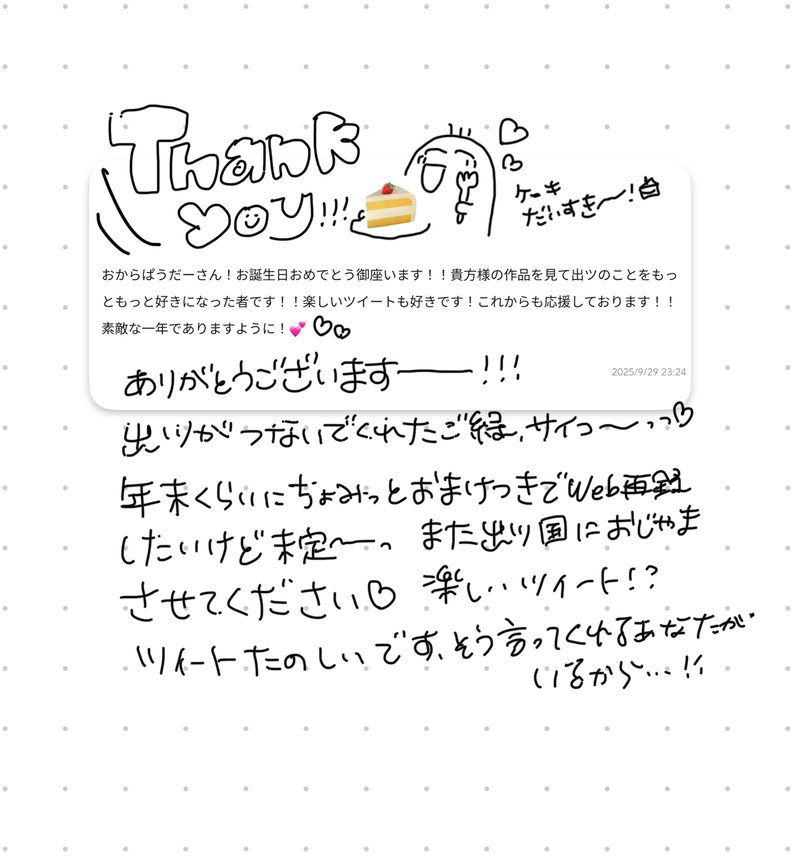 Thank
you!!!
ケーキ
だいすき〜!
おからぱうだーさん！お誕生日おめでとう御座います！！貴方様の作品を見て出ツのことをもっ
ともっと好きになった者です！！楽しいツイートも好きです！これからも応援しております！！
素敵な一年でありますように！💕
2025/9/29 23:24
ありがとうございますーー!!!
出ツがつないでくれたご縁、サイコ〜っっ♡
年末くらいにちょみっとおまけつきでWeb再録
したいけど未定〜っ また出ツ国におじゃま
させてください♡ 楽しいツイート!?
ツイートたのしいです、そう言ってくれるあなたが
いるから…!!